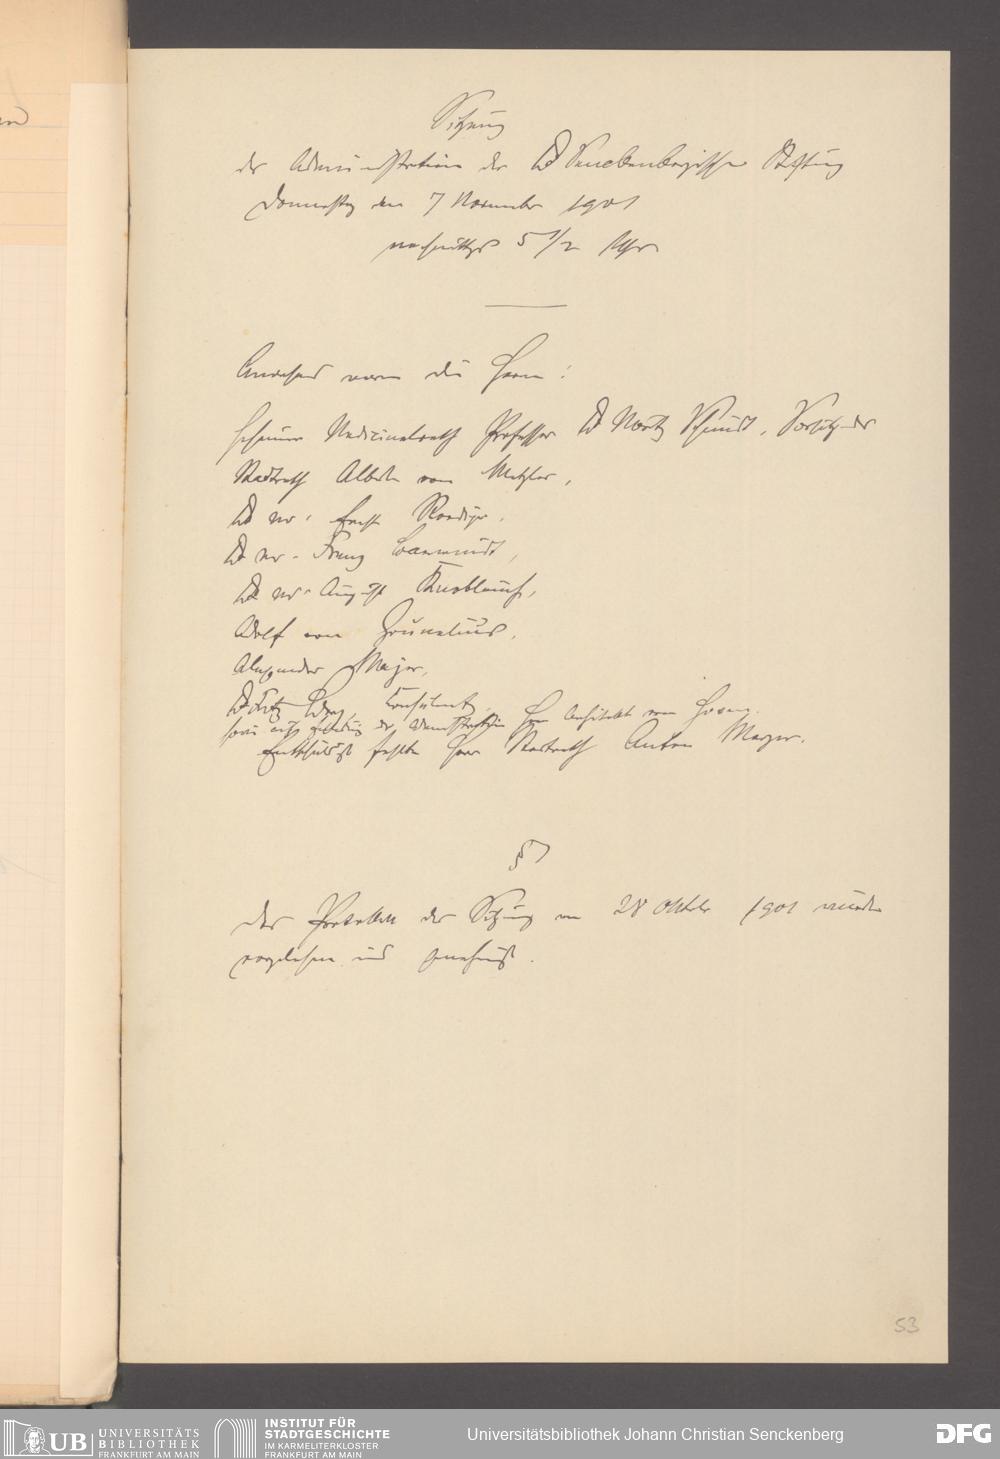 Sitzung
der Administration der Dr Senckenbergischen Stiftung
Donnerstag den 7 November 1901
nachmittags 5 1/2 Uhr
Anwesend waren die Herren:
Geheimer Medicinalrath Professor Dr Moritz Schmidt, Vorsitzender
Stadtrath Albert von Metzler,
Dr jur. Ernst Roediger,
Dr Franz
Dr August Knoblauch,
Adolf von Grunelius,
Alexander Majer,
Dr Fritz Berg, Consulent,
sowie als der Administration Herr Architekt von Hoven.
Entschuldigt fehlte Herr Stadtrath Anton Meyer.
§ 1
Das Protokoll der Sitzung vom 28 Oktober 1901 wurde
vorgelesen und genehmigt.
53
UB UNIVERSITÄTS
BIBLIOTHEK
FRANKFURT AM MAIN
INSTITUT FÜR
STADTGESCHICHTE
IM KARMELITERKLOSTER
FRANKFURT AM MAIN
Universitätsbibliothek Johann Christian Senckenberg
DFG